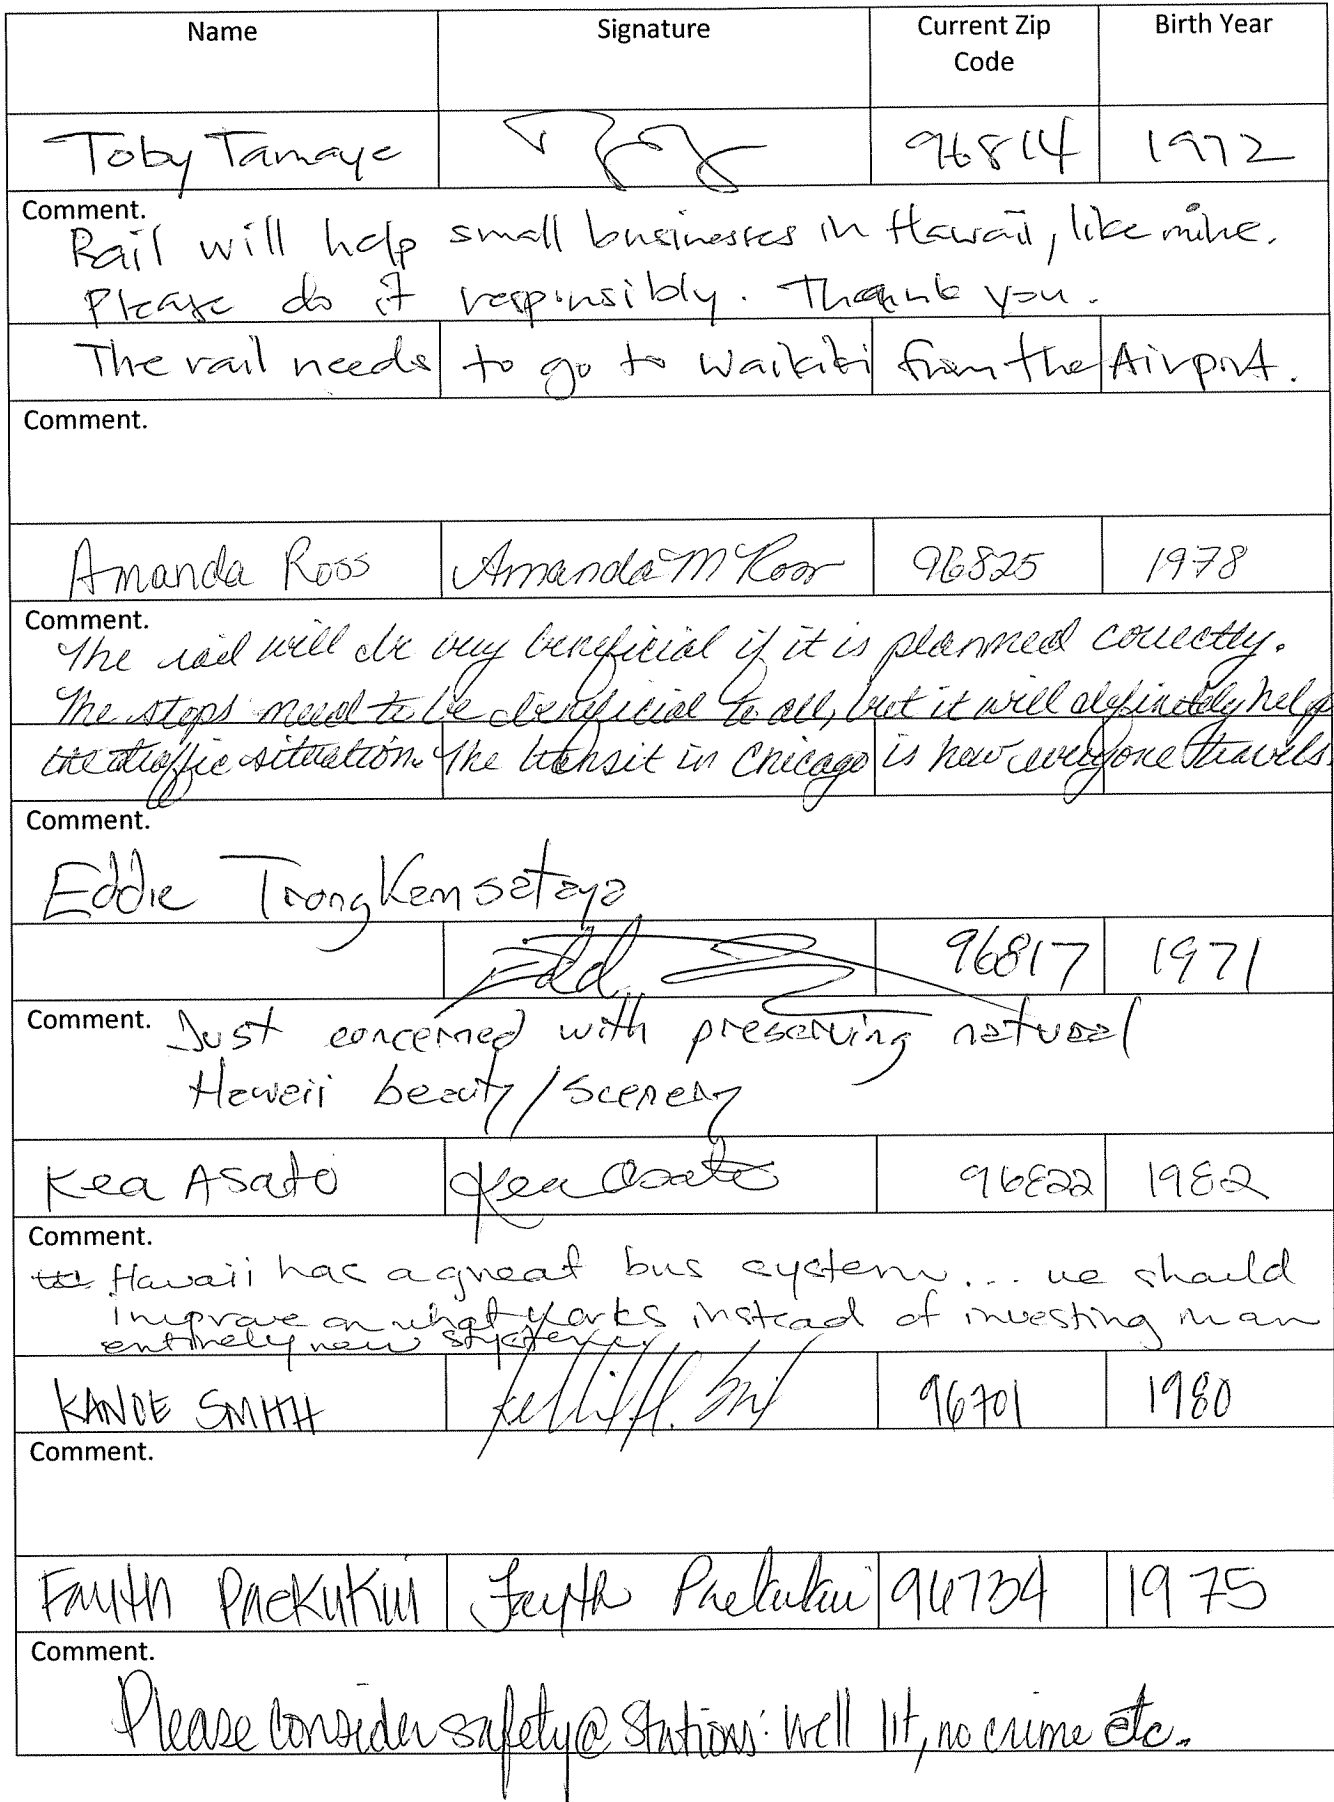 Name Signature Current Zip Code Birth Year
Toby Tamayo 96814 1972
Comment.
Rail will help small businesses in Hawaii, like mine.
Please do it responsibly. Thank you.
The rail needs to go to Waikiki from the Airport.
Comment.
Amanda Ross Amanda M Ross 96825 1978
Comment.
The rail will be very beneficial if it is planned correctly.
The stops need to be beneficial to all, but it will definitely help
the traffic situation. The transit in Chicago is how everyone travels.
Comment.
Eddie Trongkamsataya
Edd 96817 1971
Comment. Just concerned with preserving natural
Hawaii beauty/scenery
Kea Asato Kea Asato 96822 1982
Comment.
Hawaii has a great bus system... we should
improve on what works instead of investing in an
entirely new system.
KANOE SMITH 96701 1980
Comment.
Fayth Paekukui Fayth Paekukui 96734 1975
Comment.
Please consider safety @ stations: well lit, no crime etc.